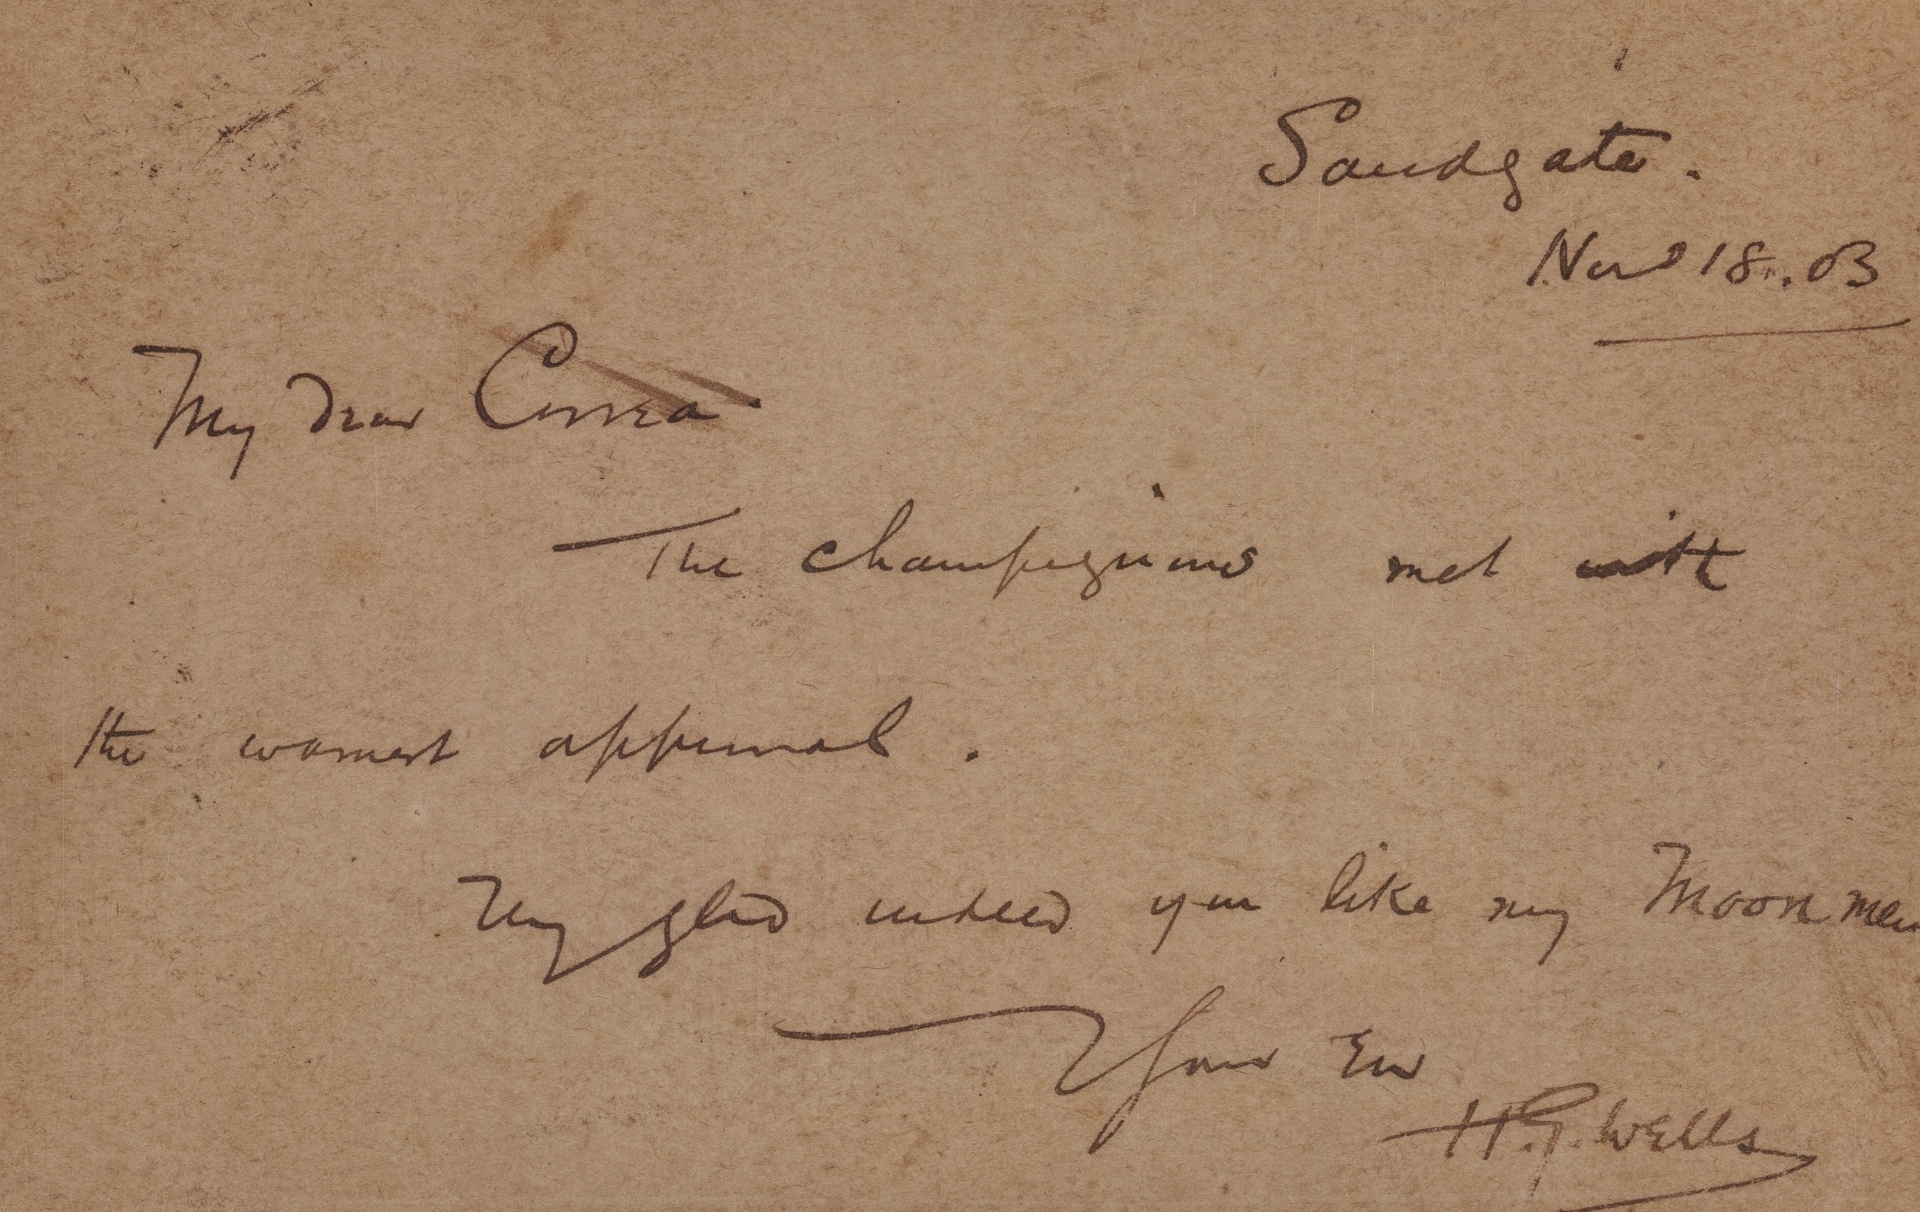 Sandgate.
Nov 18. 03
My dear Correa.
The champignons met with
the warmest approval.
Very glad indeed you like my Moon men
Yours Ever
H.G. Wells